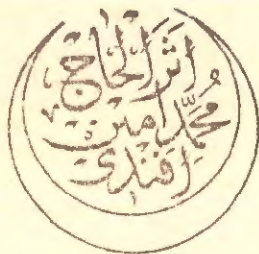 اثر الحاج
محمد امين
افندي